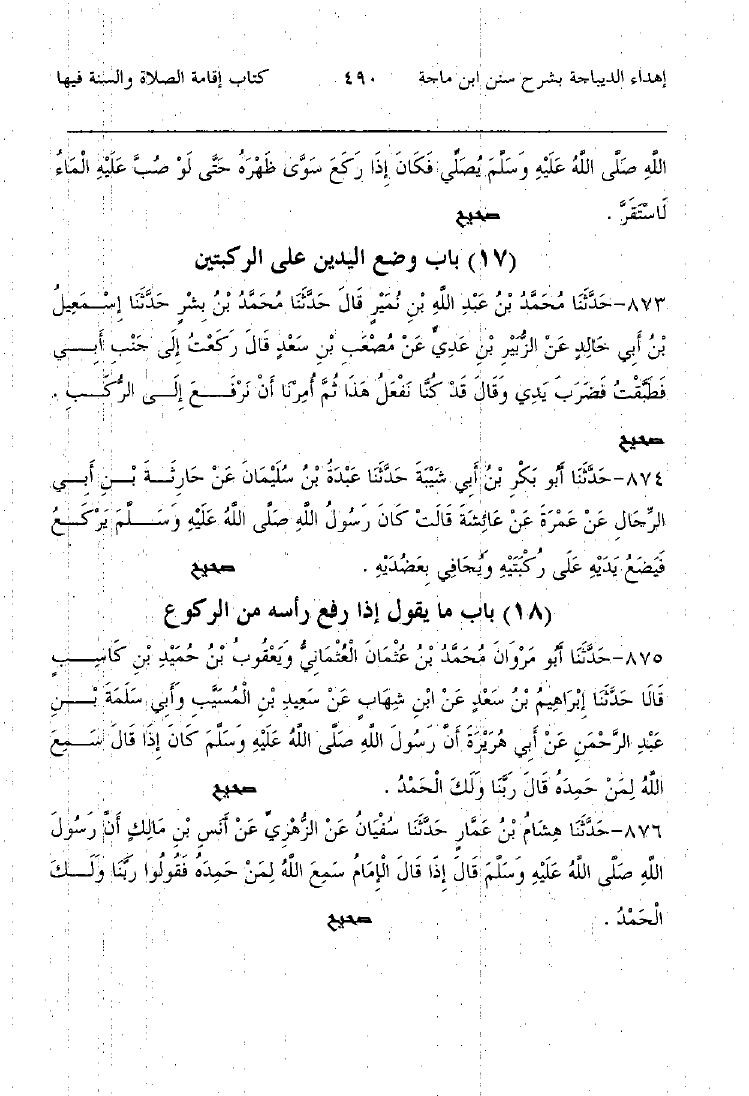 إهداء الديباجة بشرح سنن ابن ماجة ٤٩٠ كتاب إقامة الصلاة والسنة فيها
اللَّهِ صَلَّى اللَّهُ عَلَيْهِ وَسَلَّمَ يُصَلِّي فَكَانَ إِذَا رَكَعَ سَوَّى ظَهْرَهُ حَتَّى لَوْ صُبَّ عَلَيْهِ الْمَاءُ
لَاسْتَقَرَّ . صحيح
(١٧) باب وضع اليدين على الركبتين
٨٧٣-حَدَّثَنَا مُحَمَّدُ بْنُ عَبْدِ اللَّهِ بْنِ نُمَيْرٍ قَالَ حَدَّثَنَا مُحَمَّدُ بْنُ بِشْرٍ حَدَّثَنَا إِسْـمَعِيلُ
بْنُ أَبِي خَالِدٍ عَنْ الزُّبَيْرِ بْنِ عَدِيٍّ عَنْ مُصْعَبِ بْنِ سَعْدٍ قَالَ رَكَعْتُ إِلَى جَنْبِ أَبِـــي
فَطَبَّقْتُ فَضَرَبَ يَدِي وَقَالَ قَدْ كُنَّا نَفْعَلُ هَذَا ثُمَّ أُمِرْنَا أَنْ نَرْفَـــعَ إِلَـى الرُّكَـــبِ .
صحيح
٨٧٤-حَدَّثَنَا أَبُو بَكْرِ بْنُ أَبِي شَيْبَةَ حَدَّثَنَا عَبْدَةُ بْنُ سُلَيْمَانَ عَنْ حَارِثَـةَ بْـــنِ أَبِـي
الرِّجَالِ عَنْ عَمْرَةَ عَنْ عَائِشَةَ قَالَتْ كَانَ رَسُولُ اللَّهِ صَلَّى اللَّهُ عَلَيْهِ وَسَـــلَّمَ يَرْكَـــعُ
فَيَضَعُ يَدَيْهِ عَلَى رُكْبَتَيْهِ وَيُجَافِي بِعَضُدَيْهِ . صحيح
(١٨) باب ما يقول إذا رفع رأسه من الركوع
٨٧٥-حَدَّثَنَا أَبُو مَرْوَانَ مُحَمَّدُ بْنُ عُثْمَانَ الْعُثْمَانِيُّ وَيَعْقُوبُ بْنُ حُمَيْدِ بْنِ كَاسِـــبٍ
قَالَا حَدَّثَنَا إِبْرَاهِيمُ بْنُ سَعْدٍ عَنْ ابْنِ شِهَابٍ عَنْ سَعِيدِ بْنِ الْمُسَيَّبِ وَأَبِي سَلَمَةَ بْـــنِ
عَبْدِ الرَّحْمَنِ عَنْ أَبِي هُرَيْرَةَ أَنَّ رَسُولَ اللَّهِ صَلَّى اللَّهُ عَلَيْهِ وَسَلَّمَ كَانَ إِذَا قَالَ سَـــمِعَ
اللَّهُ لِمَنْ حَمِدَهُ قَالَ رَبَّنَا وَلَكَ الْحَمْدُ . صحيح
٨٧٦-حَدَّثَنَا هِشَامُ بْنُ عَمَّارٍ حَدَّثَنَا سُفْيَانُ عَنْ الزُّهْرِيِّ عَنْ أَنَسِ بْنِ مَالِكٍ أَنَّ رَسُولَ
اللَّهِ صَلَّى اللَّهُ عَلَيْهِ وَسَلَّمَ قَالَ إِذَا قَالَ الْإِمَامُ سَمِعَ اللَّهُ لِمَنْ حَمِدَهُ فَقُولُوا رَبَّنَا وَلَـــكَ
الْحَمْدُ . صحيح